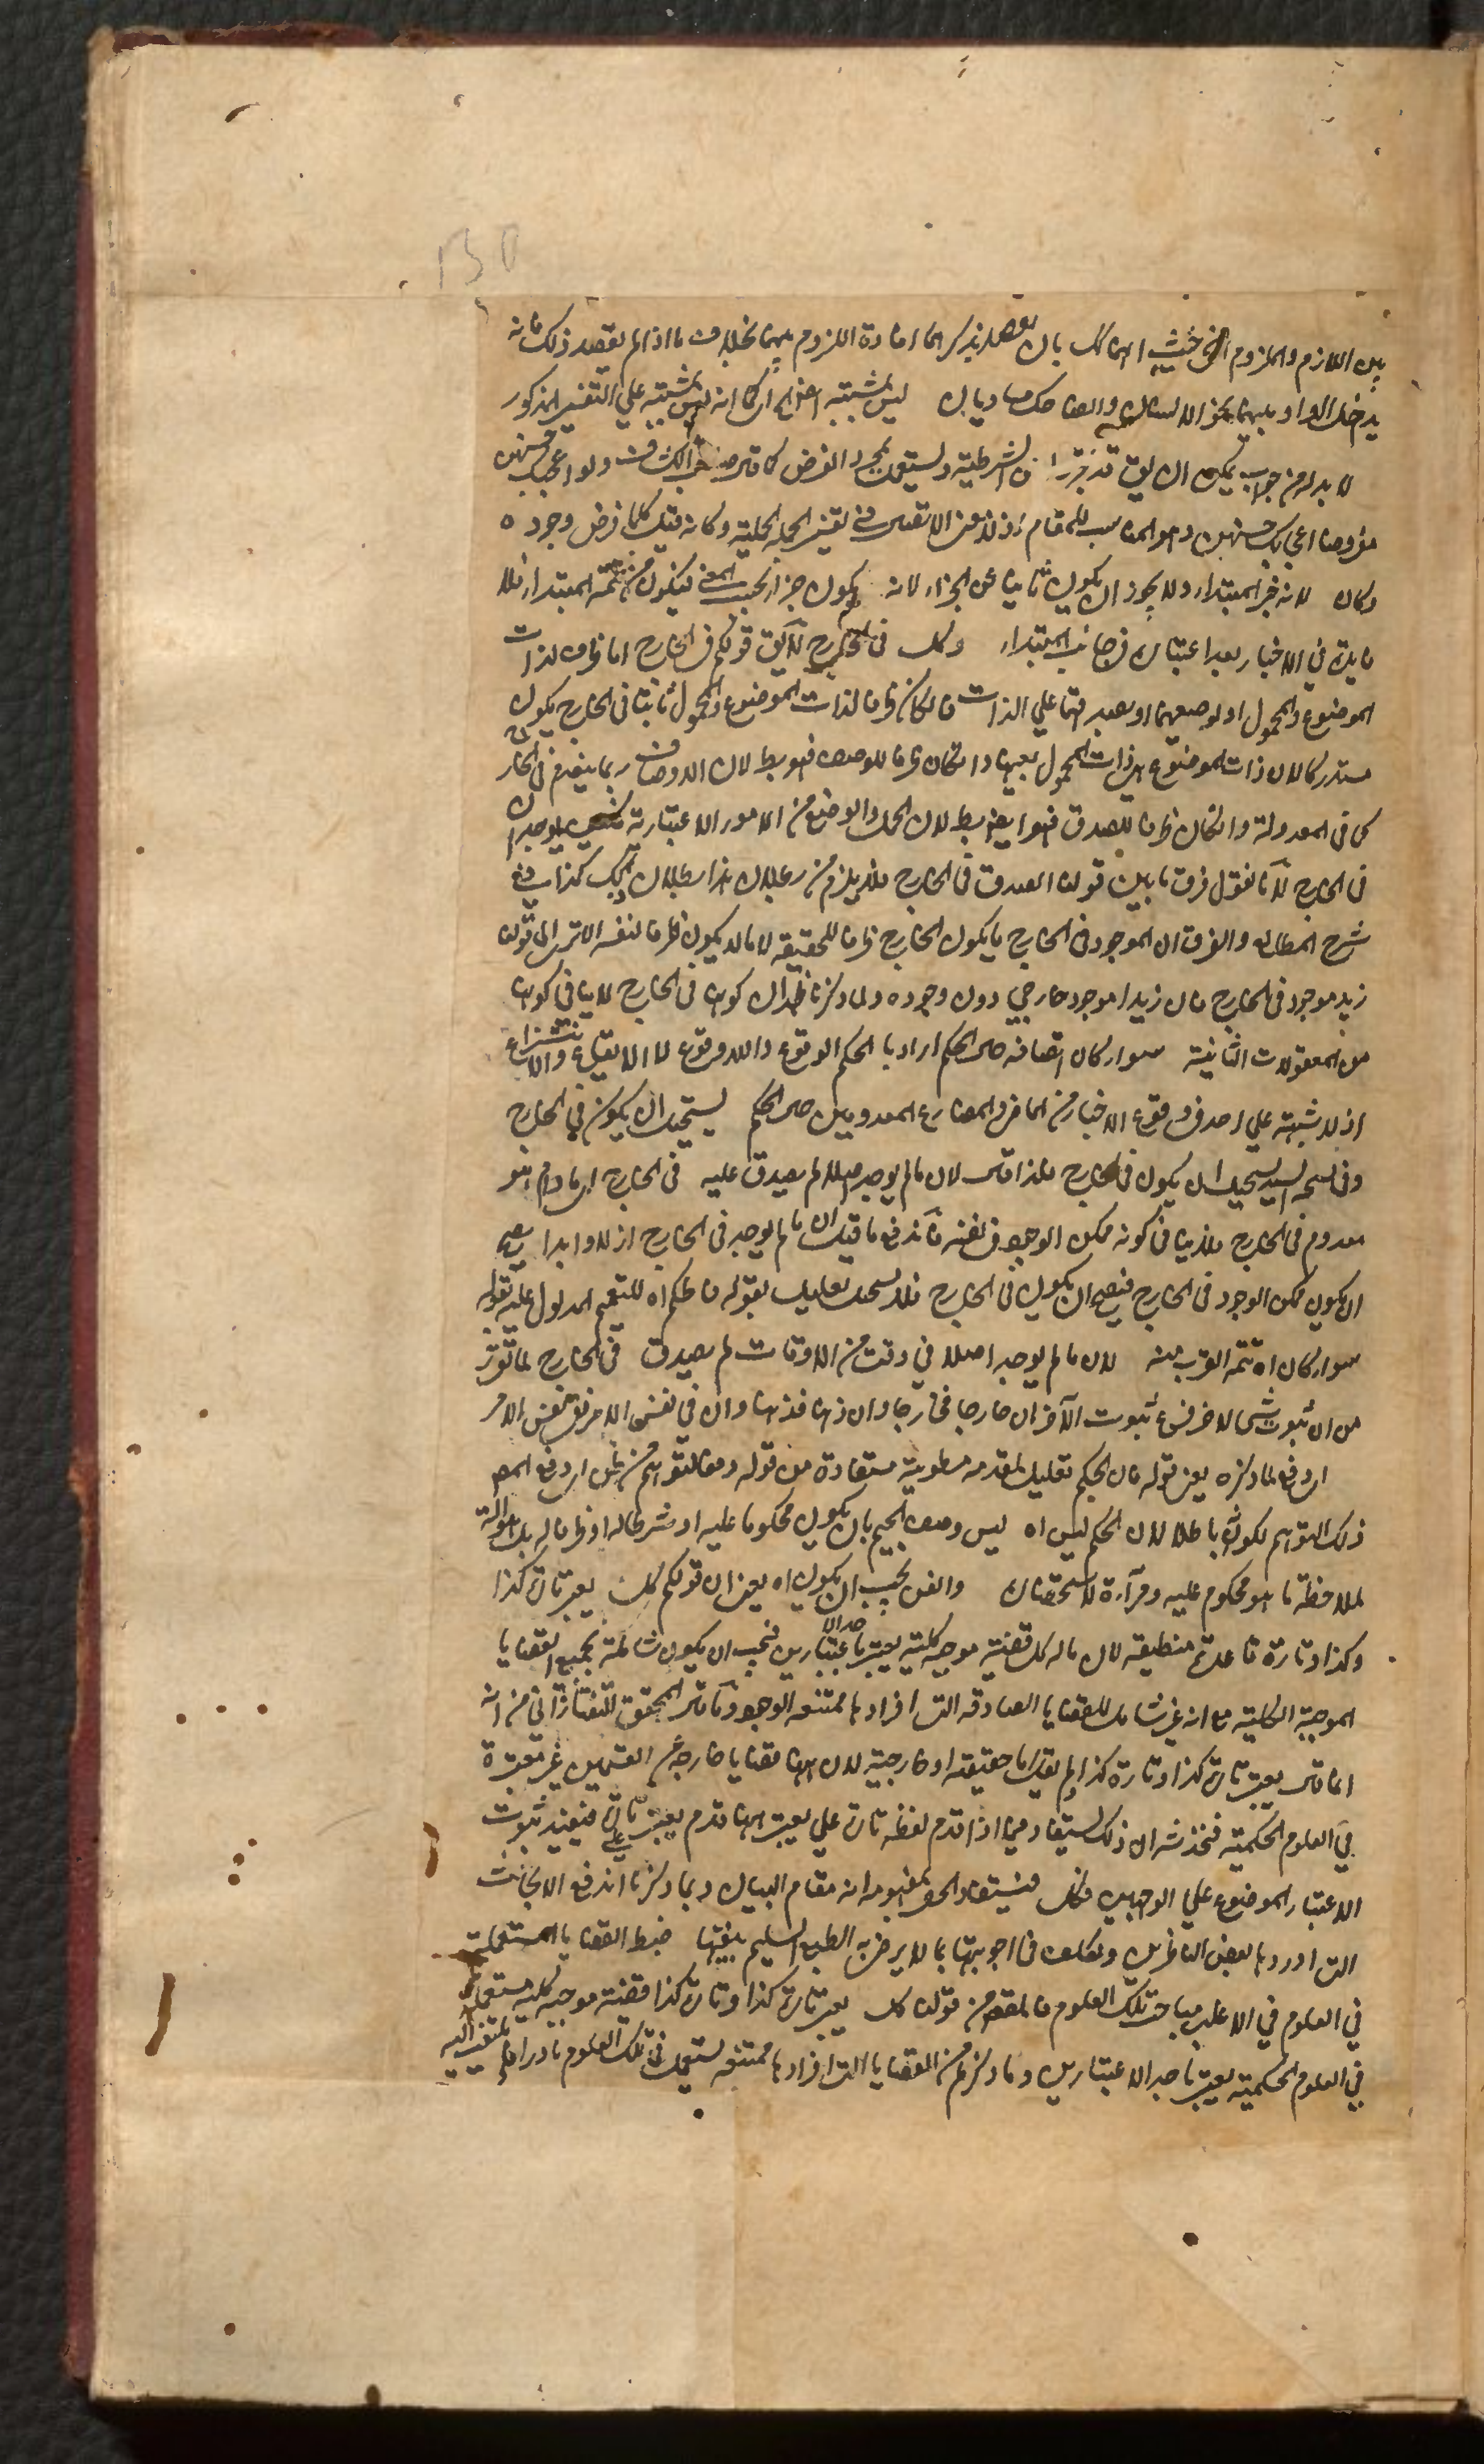 130
بين اللازم والملزوم من حيث انهما كك بان يقصد بذكرهما افادة اللزوم بينهما بخلاف ما اذا لم يقصد ذلك فانه
يدخل الواو بينهما نحو الانسان والضاحك متساويان ليس بمشتبه كما انه ليس بمشتبه على التفسير المذكور
لا بد له من جواب يمكن ان يق قد تقرر ان الشرطية وليستعمل لمجرد الفرض كما قال صاحب الكشاف ولو اعجبك حسنهن
مفروضا اعجابك حسنهن وهو المناسب للمقام اذ لا معنى للاتصال في تفسير الجملة الحملية وكانه قيل كلما فرض وجوده
وكان لانه خبر المبتداء ولا يجوز ان يكون نائبا عن الجزاء لانه يكون جزاء بحسب المعنى فيكون من تتمة المبتداء فلا
فايدة في الاخبار بعد اعتباره في جانب المبتداء وكل في الخارج لا يق قولكم في الخارج اما ظرف لذات
الموضوع والمحمول او لوصفيهما او لصدقهما على الذات فان كان ظرفا لذات الموضوع والمحمول ثانيا في الخارج يكون
مستدركا لان ذات الموضوع هي ذات المحمول بعينها وان كان ظرفا للوصف فهو بط لان الاوصاف ربما ينعدم في الخارج
كما في المعدولة وان كان ظرفا للصدق فهو ايضا بط لان الحمل والوضع من الامور الاعتبارية يوجدان
في الخارج لانا نقول فرق ما بين قولنا الصدق في الخارج فلا يلزم من بطلان هذا بطلان ذلك كذا في
شرح المطالع والفرق ان الموجود في الخارج ما يكون الخارج ظرفا للحقيقة لا ما لا يكون ظرفا لنفسه الا ترى الى قولنا
زيد موجود في الخارج فان زيدا موجود خارجي دون وجوده ولما ذكرنا ظهر ان كونه في الخارج لا ينافي كونه
من المعقولات الثانية سواء كان اتصافه حال الحكم اراد بالحكم الوقوع واللاوقوع لا الايقاع والانتزاع
اذ لا شبهة على احد في وقوع الاخبار من الماضي والمضارع المعدومين حال الحكم يستحيل ان يكون في الخارج
وفي نسخة السيد يستحيل ان يكون في الخارج فلذا قال لان ما لم يوجد اصلا لم يصدق عليه في الخارج اي ما دام هو
معدوم في الخارج فلا ينافي كونه ممكن الوجود في نفسه فاندفع ما قيل ان ما لم يوجد في الخارج ازلا وابدا يصح
ان يكون ممكن الوجود في الخارج فيصح ان يكون في الخارج فلا يستحيل تعليل بقوله فالحكم اه للتعميم المدلول عليه بقوله
سواء كان اه تتمه القرب منه لان ما لم يوجد اصلا في وقت من الاوقات لم يصدق في الخارج لما تقرر
من ان ثبوت شئ لاخر فرع ثبوت الآخر ان خارجا فخارجا وان ذهنا فذهنا وان في نفس الامر ففي نفس الامر
ان دفع لما ذكره يعني قوله فان الحكم تعليل لمقدمه مطوية مستفادة من قوله دفعا لتوهم من ظن اي دفع المص
ذلك التوهم لكونه باطلا لان الحكم ليس اه ليس وصف الجيم بان يكون محكوما عليه او شرطا له او ظرفا له بل هو الة
لملاحظة ما هو محكوم عليه ومرآة لاستحضاره والفن يجب ان يكون اه يعني ان قولكم كل يعتبر تارة كذا
وكذا وتارة قاعدة منطيقه لان ما له كل قضية موجبه كلية يعتبر باحد الاعتبارين فيجب ان يكون شاملة بجميع القضايا
الموجبة الكلية مع انه غير شامل للقضايا الصادقه التي افرادها ممتنعه الوجود وما قال المحقق التفتازاني من انه
انما قال يعتبر تارة كذا وتارة كذا ولم يقل اما حقيقية او خارجية لان هنا قضايا خارجة عن القسمين غير معتبرة
في العلوم الحكمية فخدشه ان ذلك يستفاد فيما اذا قدم لفظه تارة على يعتبر وهنا قدم يعتبر على تارة فيفيد ثبوت
الاعتبار الموضوع على الوجهين فكل فيستفاد الحصر بمفهومه انه مقام البيان وبما ذكرنا اندفع الابحاث
التي اوردها بعض الناظرين وتكلف في اجوبتها بما لا يرضى به الطبع السليم بعينها ضبط القضايا المستعملة
في العلوم في الاغلب مباحث تلك العلوم فالمقصود من قولنا كل يعتبر تارة كذا وتارة كذا قضية موجبه كليه مستعملة
في العلوم الحكمية يعتبر باحد الاعتبارين وما ذكرتم من القضايا التي افرادها ممتنعه يستعمل في تلك العلوم نادرا فلم يلتفت اليه